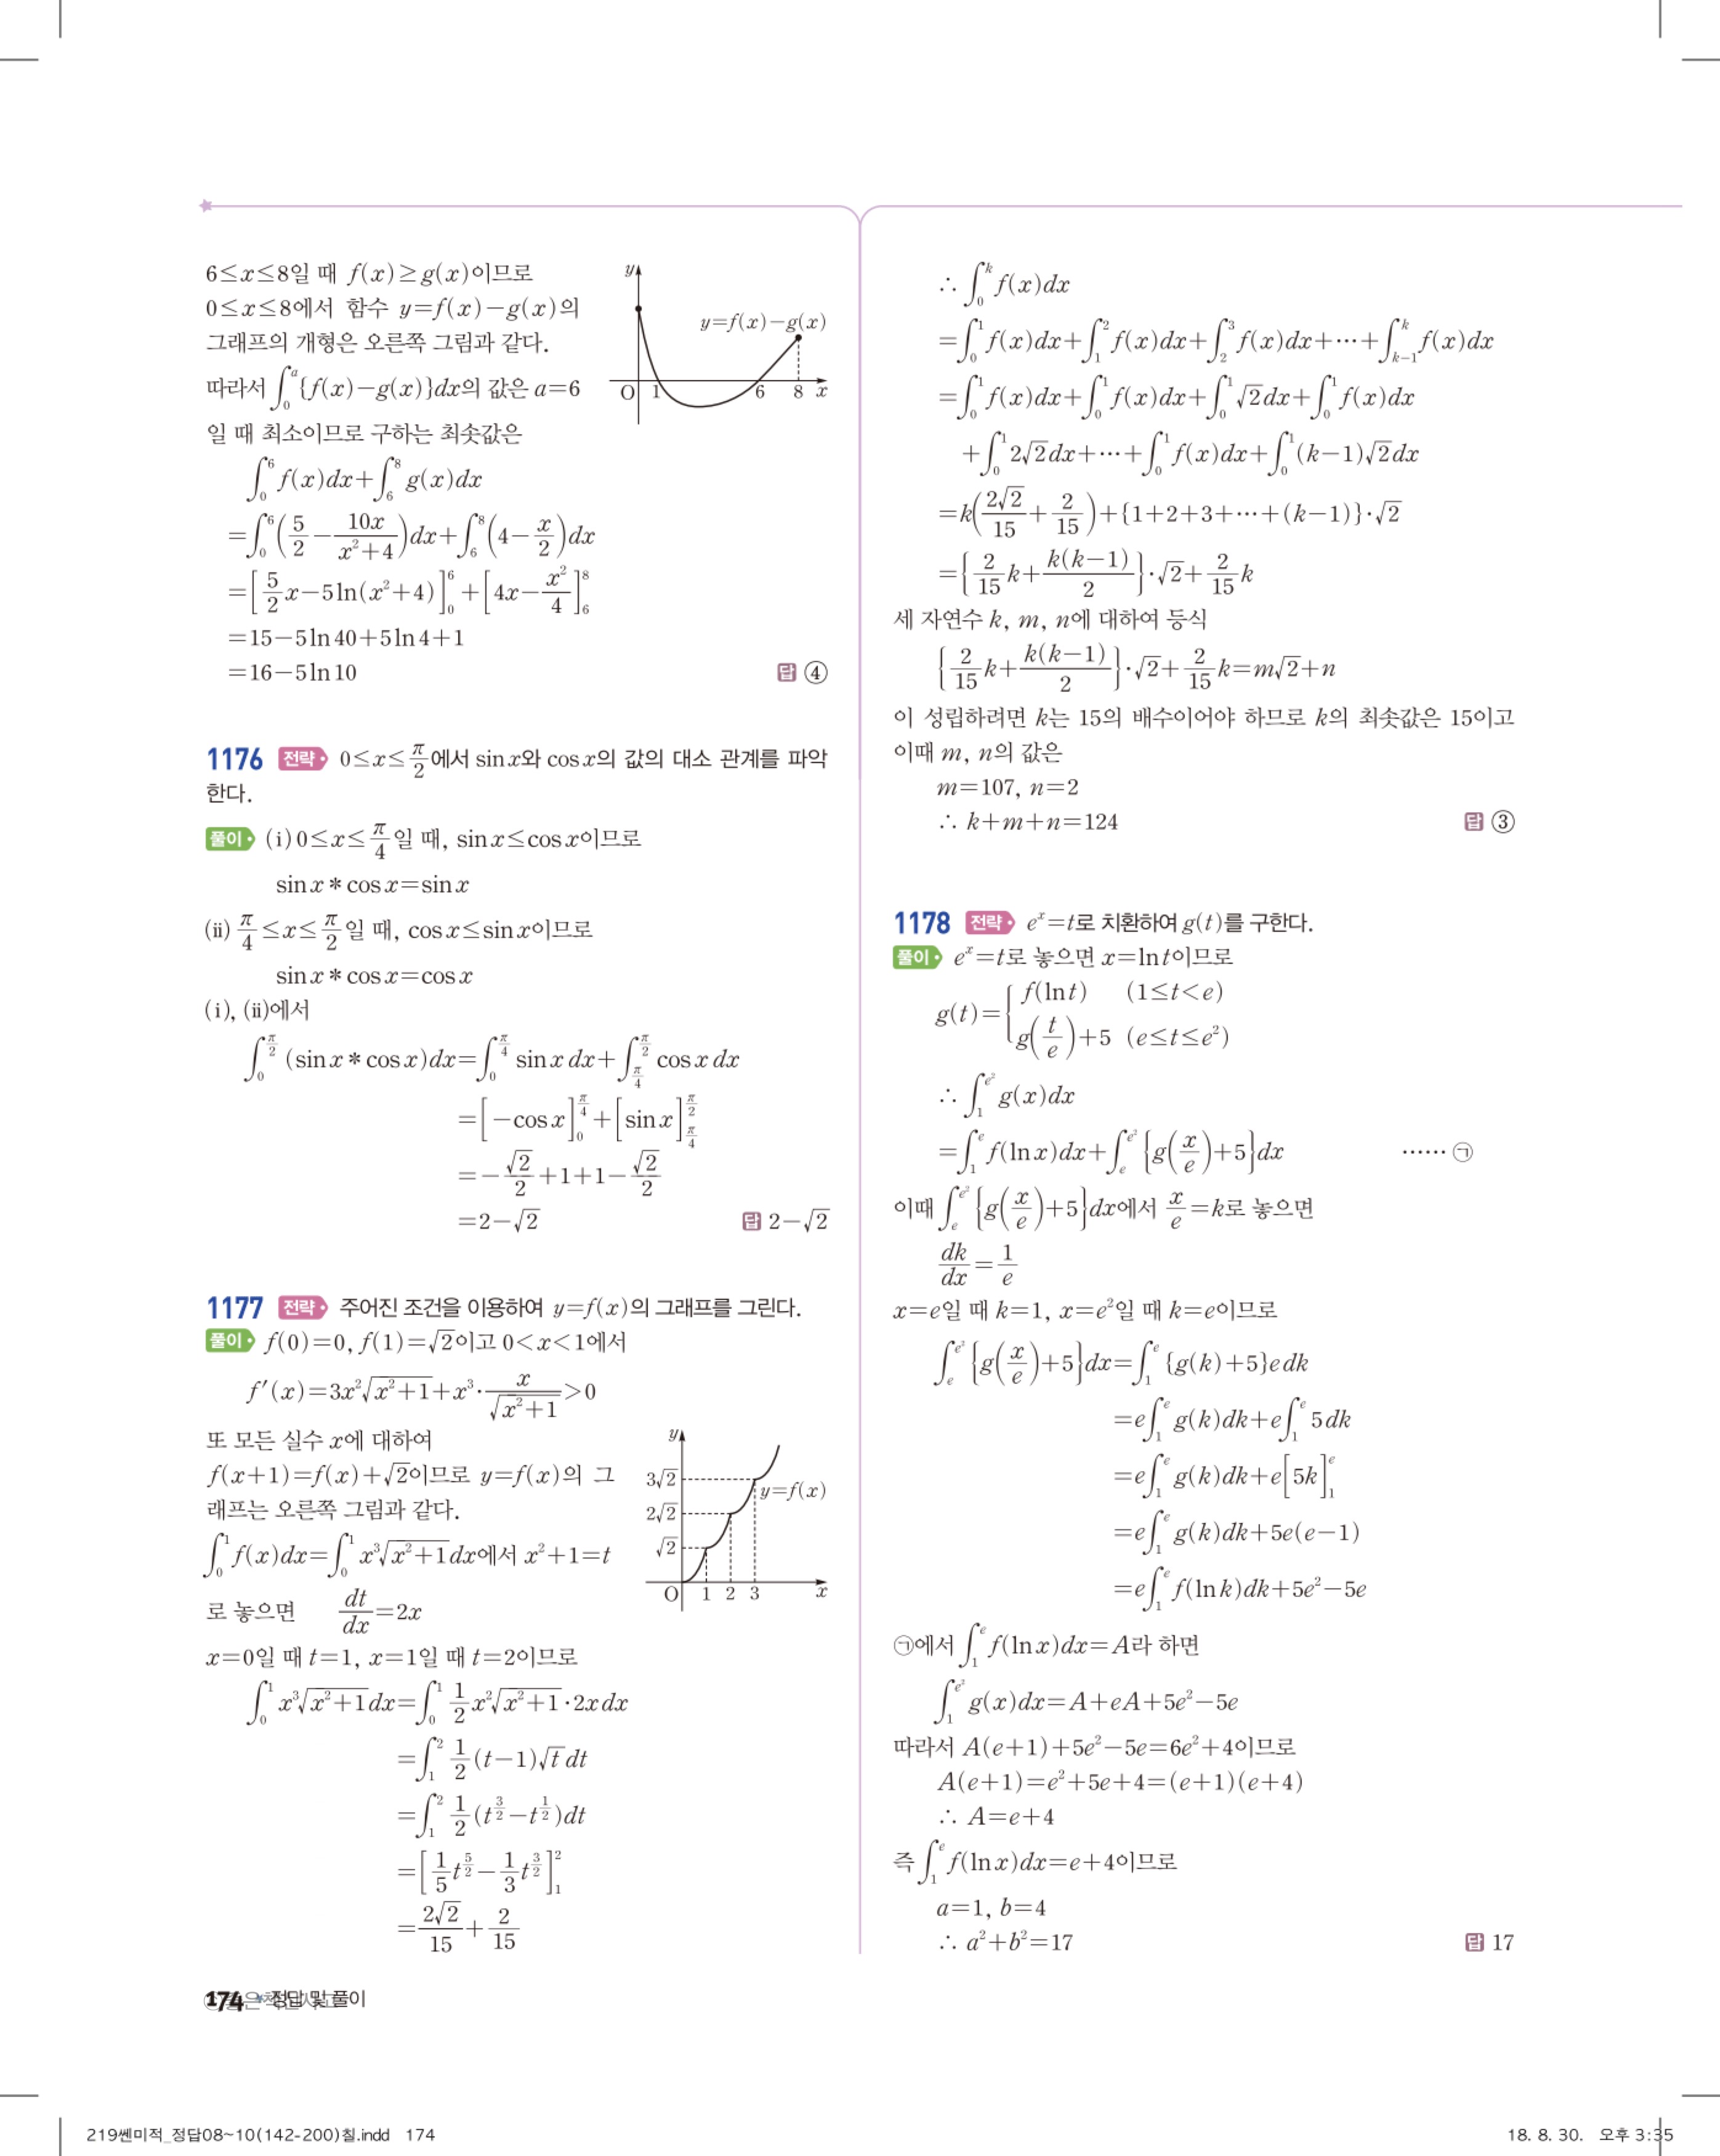 6≤x≤8일 때 f(x)≥g(x)이므로
0≤x≤8에서 함수 y=f(x)-g(x)의
그래프의 개형은 오른쪽 그림과 같다.
따라서 ∫_0^a {f(x)-g(x)}dx의 값은 a=6
일 때 최소이므로 구하는 최솟값은
y
y=f(x)-g(x)
O 1 6 8 x
∫_0^6 f(x)dx+∫_6^8 g(x)dx
=∫_0^6 (5/2-10x/(x²+4))dx+∫_6^8 (4-x/2)dx
=[5/2 x-5ln(x²+4)]_0^6+[4x-x²/4]_6^8
=15-5ln40+5ln4+1
=16-5ln10
답 ④
1176 전략 0≤x≤π/2에서 sinx와 cosx의 값의 대소 관계를 파악
한다.
풀이 (i) 0≤x≤π/4일 때, sinx≤cosx이므로
sinx*cosx=sinx
(ii) π/4≤x≤π/2일 때, cosx≤sinx이므로
sinx*cosx=cosx
(i), (ii)에서
∫_0^{π/2} (sinx*cosx)dx=∫_0^{π/4} sinxdx+∫_{π/4}^{π/2} cosxdx
=[-cosx]_0^{π/4}+[sinx]_{π/4}^{π/2}
=-√2/2+1+1-√2/2
=2-√2
답 2-√2
1177 전략 주어진 조건을 이용하여 y=f(x)의 그래프를 그린다.
풀이 f(0)=0, f(1)=√2이고 0<x<1에서
f'(x)=3x²√(x²+1)+x³·x/√(x²+1)>0
또 모든 실수 x에 대하여
f(x+1)=f(x)+√2이므로 y=f(x)의 그
래프는 오른쪽 그림과 같다.
y
3√2
y=f(x)
2√2
√2
O 1 2 3 x
∫_0^1 f(x)dx=∫_0^1 x³√(x²+1)dx에서 x²+1=t
로 놓으면 dt/dx=2x
x=0일 때 t=1, x=1일 때 t=2이므로
∫_0^1 x³√(x²+1)dx=∫_0^1 1/2 x²√(x²+1)·2xdx
=∫_1^2 1/2(t-1)√t dt
=∫_1^2 1/2(t^{3/2}-t^{1/2})dt
=[1/5 t^{5/2}-1/3 t^{3/2}]_1^2
=2√2/15+2/15
∴ ∫_0^k f(x)dx
=∫_0^1 f(x)dx+∫_1^2 f(x)dx+∫_2^3 f(x)dx+⋯+∫_{k-1}^k f(x)dx
=∫_0^1 f(x)dx+∫_0^1 f(x)dx+∫_0^1 √2dx+∫_0^1 f(x)dx
+∫_0^1 2√2dx+⋯+∫_0^1 f(x)dx+∫_0^1 (k-1)√2dx
=k(2√2/15+2/15)+{1+2+3+⋯+(k-1)}·√2
={2/15 k+k(k-1)/2}·√2+2/15 k
세 자연수 k, m, n에 대하여 등식
{2/15 k+k(k-1)/2}·√2+2/15 k=m√2+n
이 성립하려면 k는 15의 배수이어야 하므로 k의 최솟값은 15이고
이때 m, n의 값은
m=107, n=2
∴ k+m+n=124
답 ③
1178 전략 e^x=t로 치환하여 g(t)를 구한다.
풀이 e^x=t로 놓으면 x=lnt이므로
g(t)={ f(lnt) (1≤t<e)
g(t/e)+5 (e≤t≤e²)
∴ ∫_1^{e²} g(x)dx
=∫_1^e f(lnx)dx+∫_e^{e²} {g(x/e)+5}dx ⋯⋯ ㉠
이때 ∫_e^{e²} {g(x/e)+5}dx에서 x/e=k로 놓으면
dk/dx=1/e
x=e일 때 k=1, x=e²일 때 k=e이므로
∫_e^{e²} {g(x/e)+5}dx=∫_1^e {g(k)+5}edk
=e∫_1^e g(k)dk+e∫_1^e 5dk
=e∫_1^e g(k)dk+e[5k]_1^e
=e∫_1^e g(k)dk+5e(e-1)
=e∫_1^e f(lnk)dk+5e²-5e
㉠에서 ∫_1^e f(lnx)dx=A라 하면
∫_1^{e²} g(x)dx=A+eA+5e²-5e
따라서 A(e+1)+5e²-5e=6e²+4이므로
A(e+1)=e²+5e+4=(e+1)(e+4)
∴ A=e+4
즉 ∫_1^e f(lnx)dx=e+4이므로
a=1, b=4
∴ a²+b²=17
답 17
174 정답 및 풀이
219쎈미적_정답08~10(142-200)칠.indd 174
18. 8. 30. 오후 3:35